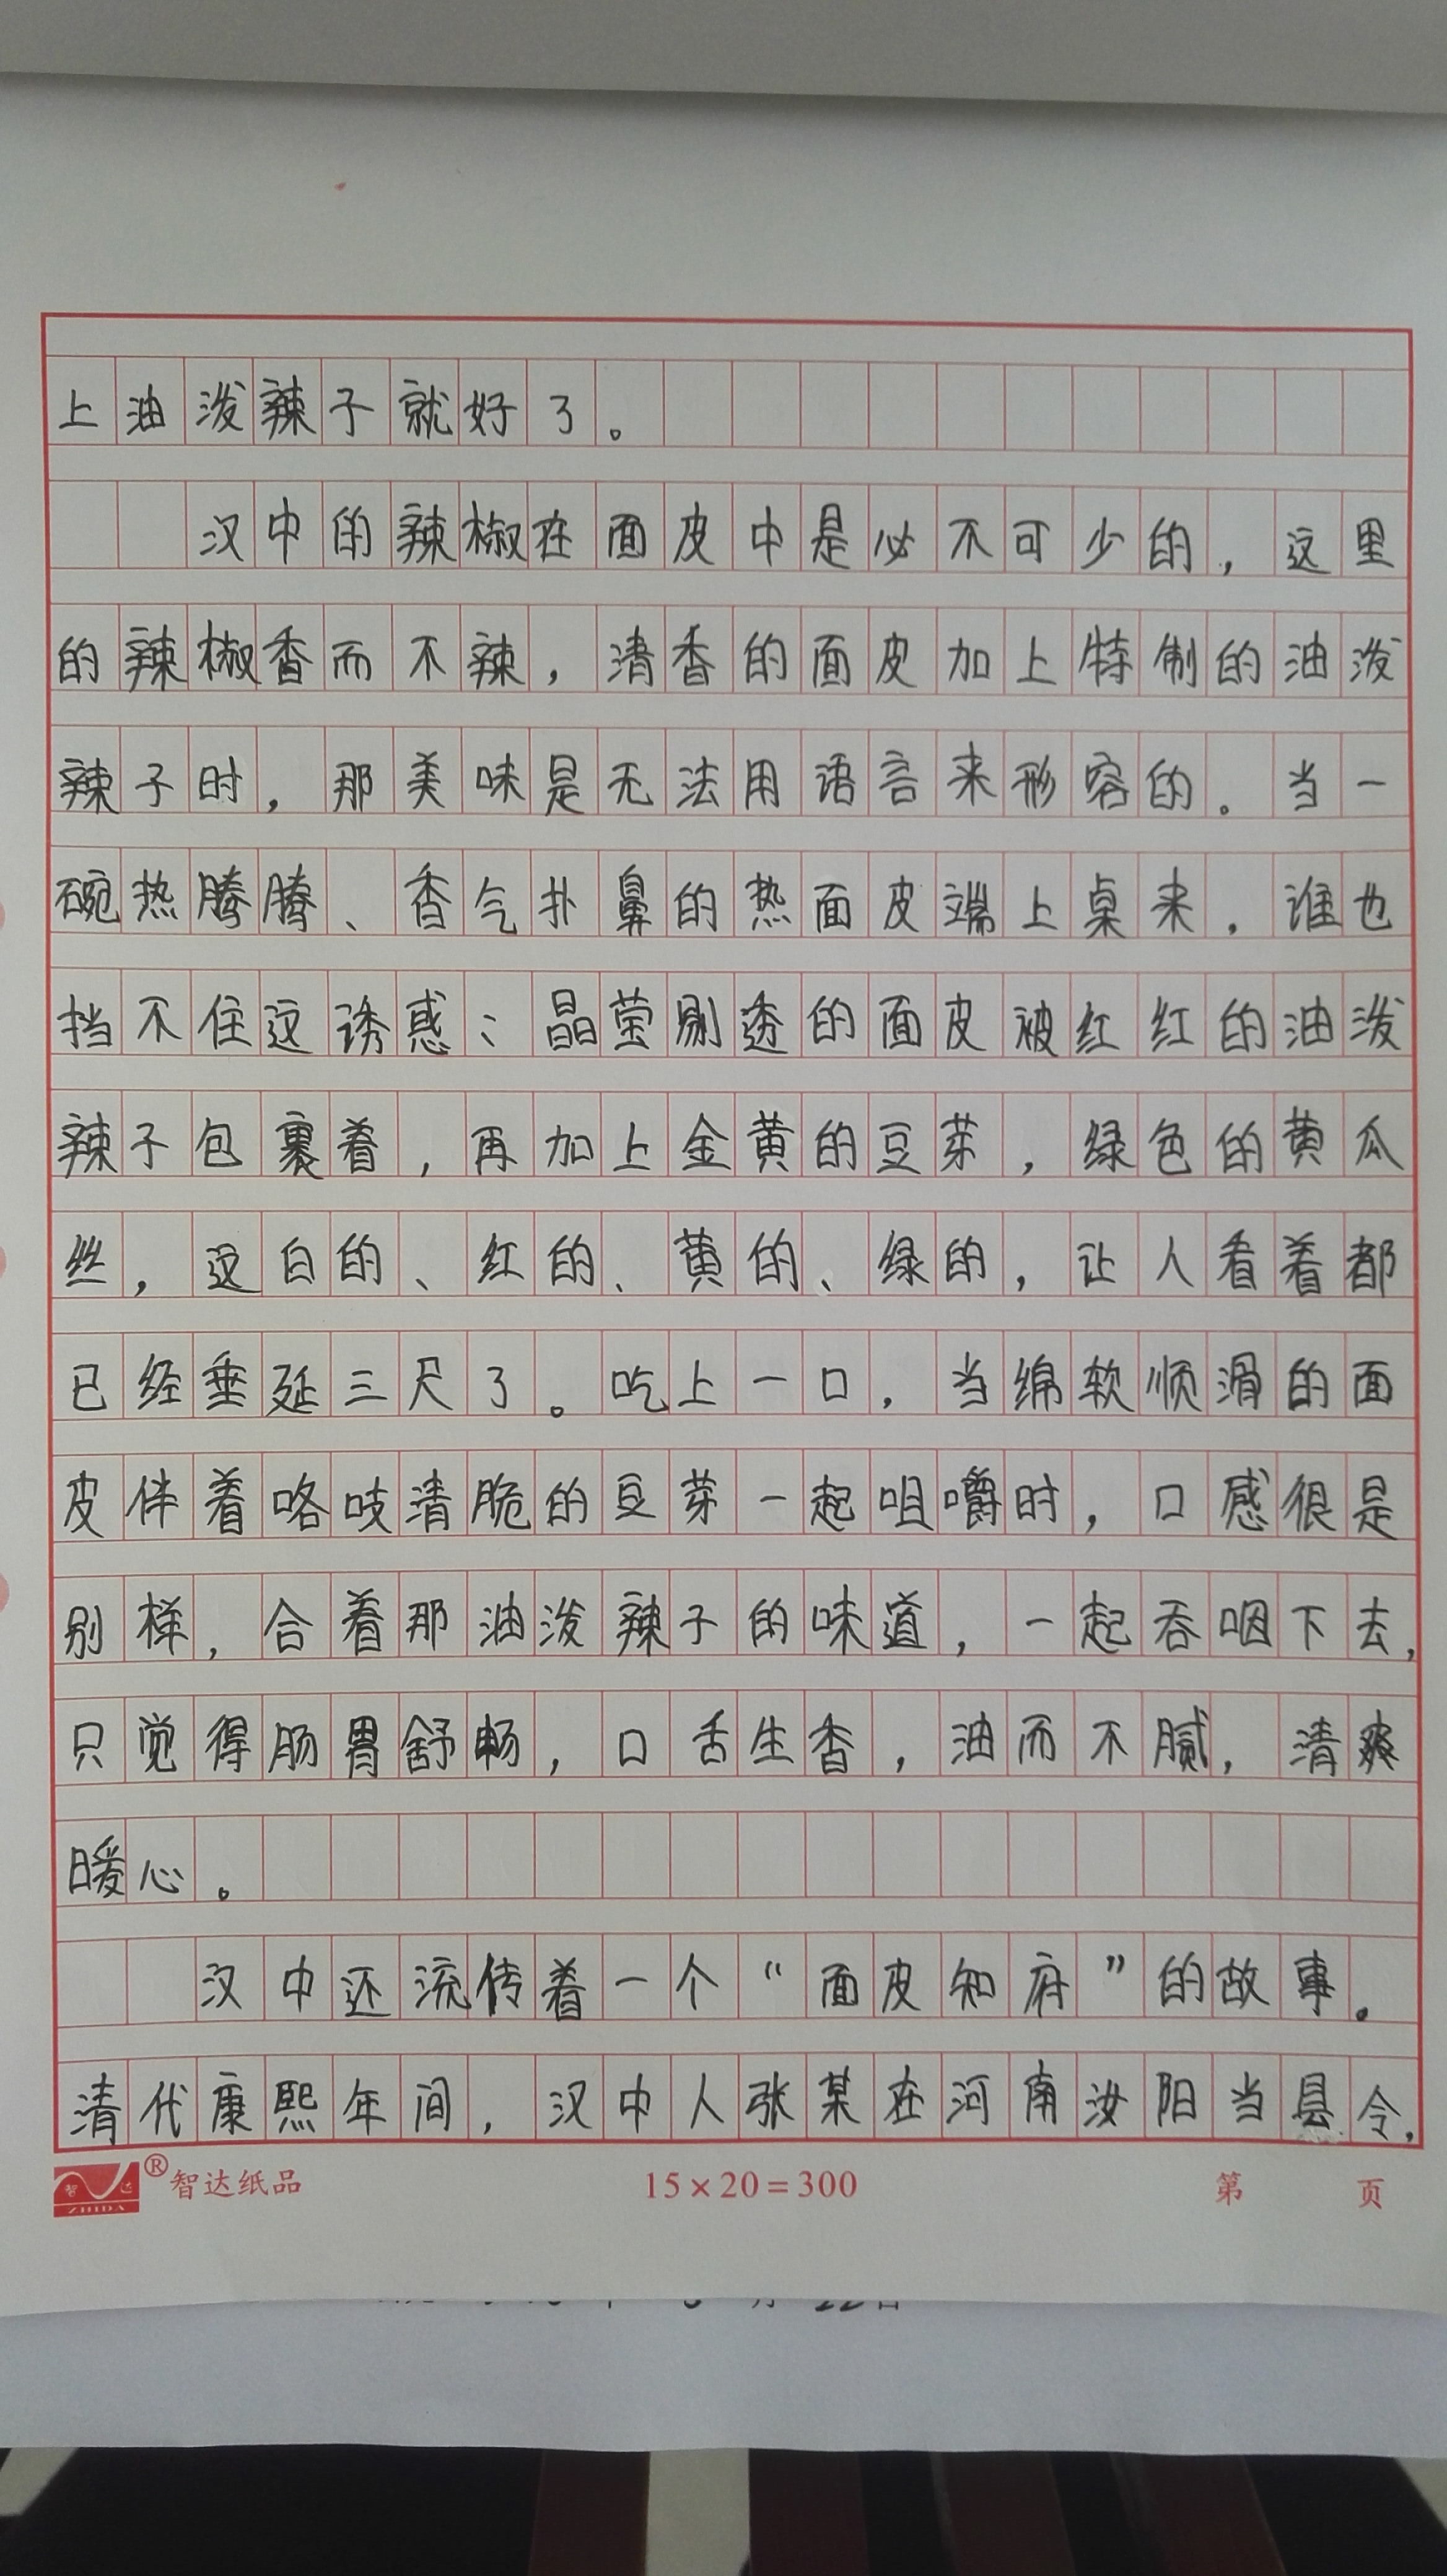 上油泼辣子就好了。
汉中的辣椒在面皮中是必不可少的，这里
的辣椒香而不辣，清香的面皮加上特制的油泼
辣子时，那美味是无法用语言来形容的。当一
碗热腾腾、香气扑鼻的热面皮端上桌来，谁也
挡不住这诱惑：晶莹剔透的面皮被红红的油泼
辣子包裹着，再加上金黄的豆芽，绿色的黄瓜
丝，这白的、红的、黄的、绿的，让人看着都
已经垂延三尺了。吃上一口，当绵软顺滑的面
皮伴着咯吱清脆的豆芽一起咀嚼时，口感很是
别样，合着那油泼辣子的味道，一起吞咽下去，
只觉得肠胃舒畅，口舌生香，油而不腻，清爽
暖心。
汉中还流传着一个“面皮知府”的故事。
清代康熙年间，汉中人张某在河南汝阳当县令，
智达 ZHIDA ® 智达纸品 15×20=300 第 页